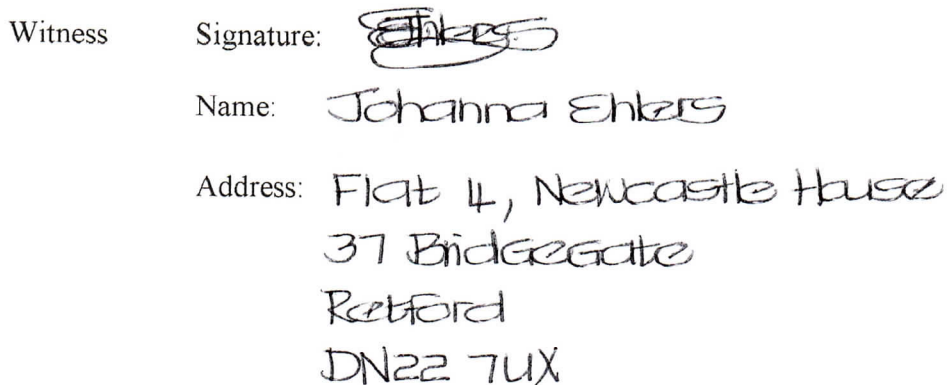 Witness Signature: Ehlers
Name: Johanna Ehlers
Address: Flat 4, Newcastle House
37 Bridgegate
Retford
DN22 7UX